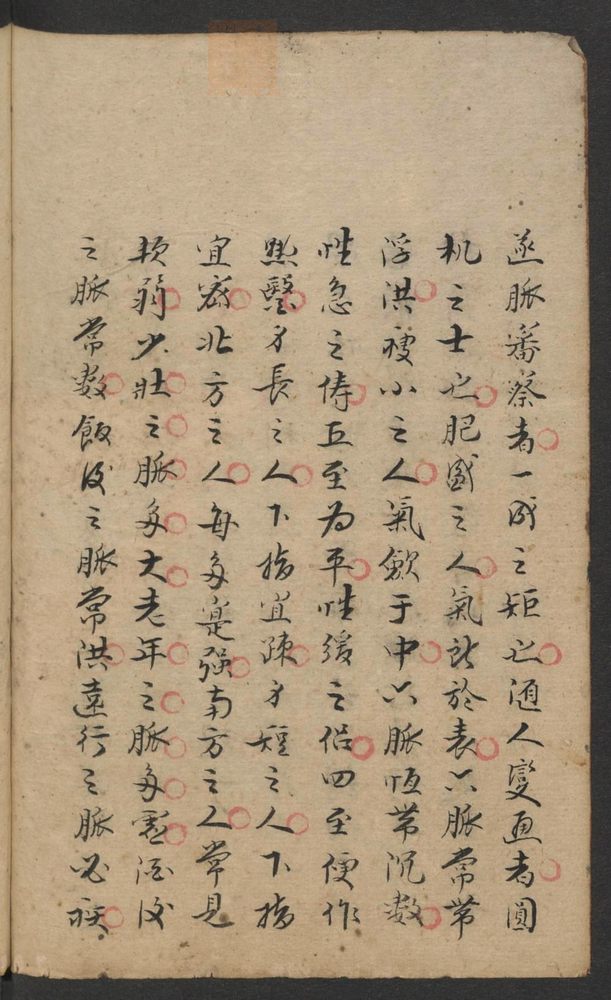 逐脈審察者一成之矩也随人變通者圓
机之士也肥盛之人氣北於表六脈常帶
浮洪瘦小之人氣歛于中六脈恆帶沉數
性急之儔五至為平性緩之侣四至便作
熱醫身長之人下指宜疎身短之人下指
宜密北方之人每多寔强南方之人常見
軟弱少壯之脈多大老年之脈多虛酒後
之脈常數飯後之脈常洪遠行之脈必疾